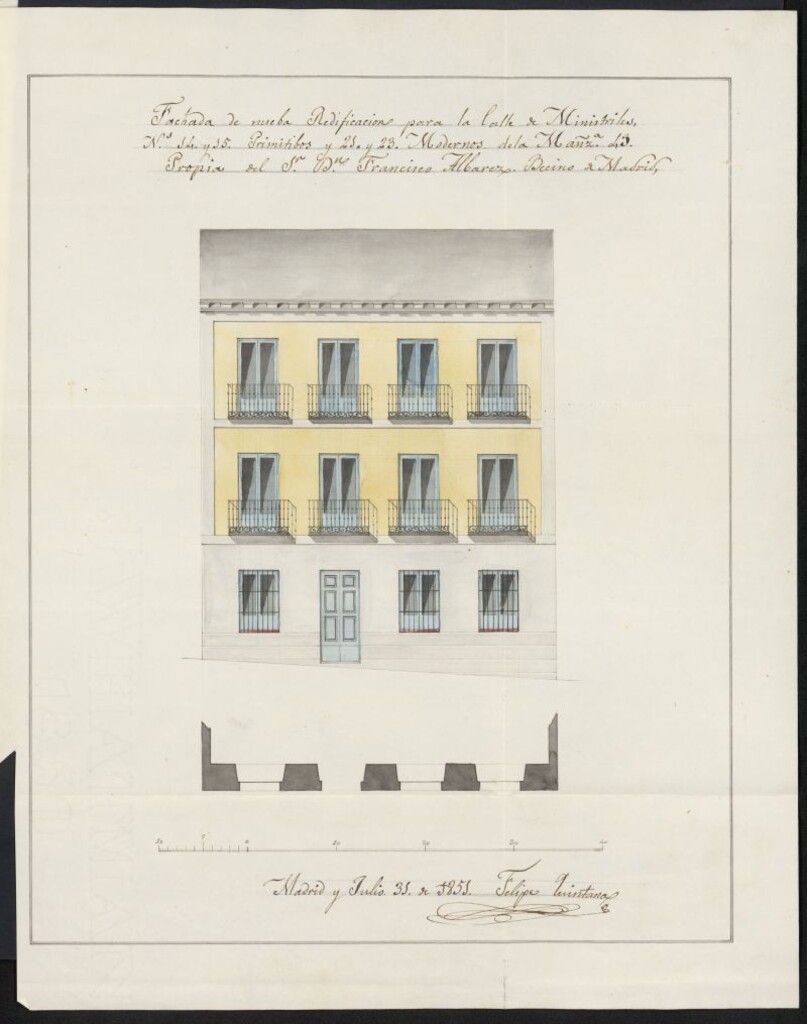 Fachada de nueba Redificacion para la Calle de Ministriles,
N.ᵒˢ 14. y 15. Primitibos y 21. y 23. Modernos de la Manz.ᵃ 43.
Propia del S.ʳ D.ⁿ Francisco Albarez. Becino de Madrid,
10 5 0 10 20 30
Madrid y Julio 31. de 1851. Felipe Quintana